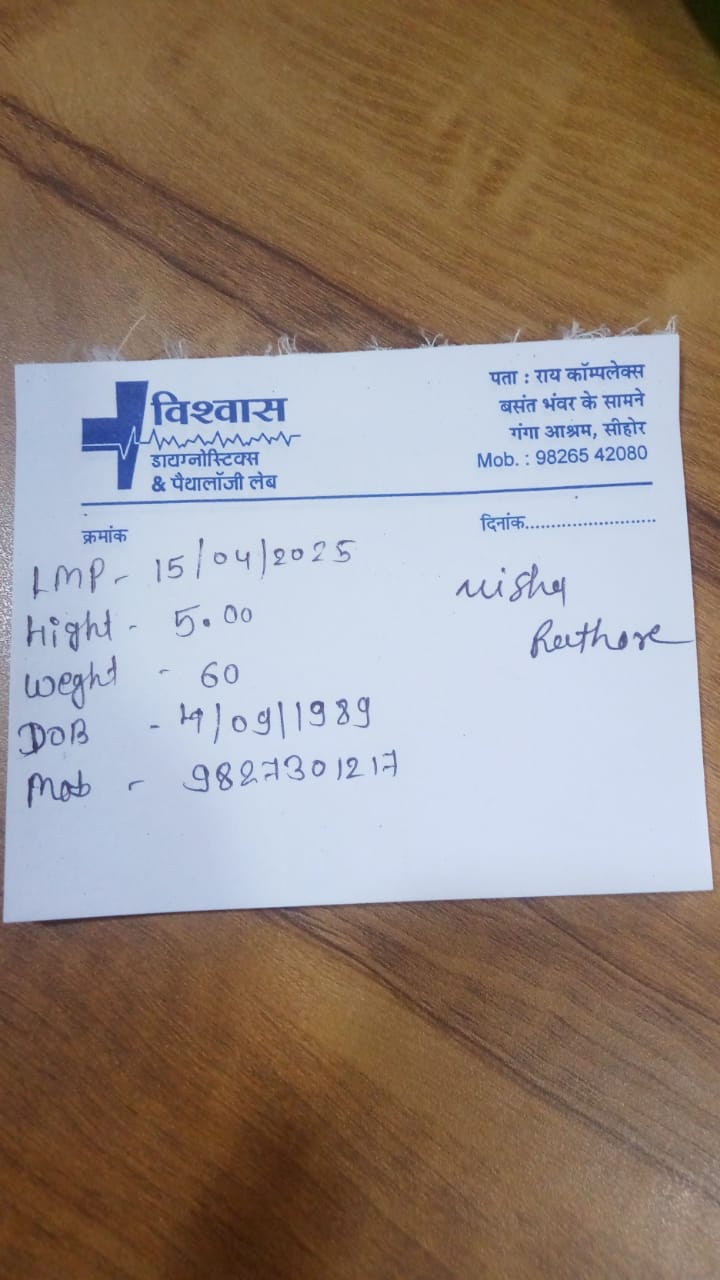 विश्वास
डायग्नोस्टिक्स
& पैथालॉजी लेब
पता : राय कॉम्पलेक्स
बसंत भंवर के सामने
गंगा आश्रम, सीहोर
Mob. : 98265 42080
क्रमांक
दिनांक.........................
LMP - 15/04/2025
Hight - 5.00
Weght - 60
DOB - /09/1989
Mob - 9827301217
Nisha
Rathore